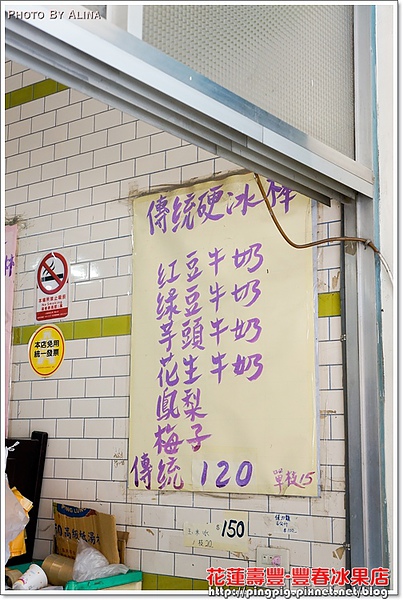 PHOTO BY ALINA
傳統硬冰棒
紅豆牛奶
綠豆牛奶
芋頭牛奶
花生牛奶
鳳梨
梅子
傳統 120
單枝15
本店免用
統一發票
150
花蓮壽豐-豐春冰果店
http://pingpig.pixnet.net/blog